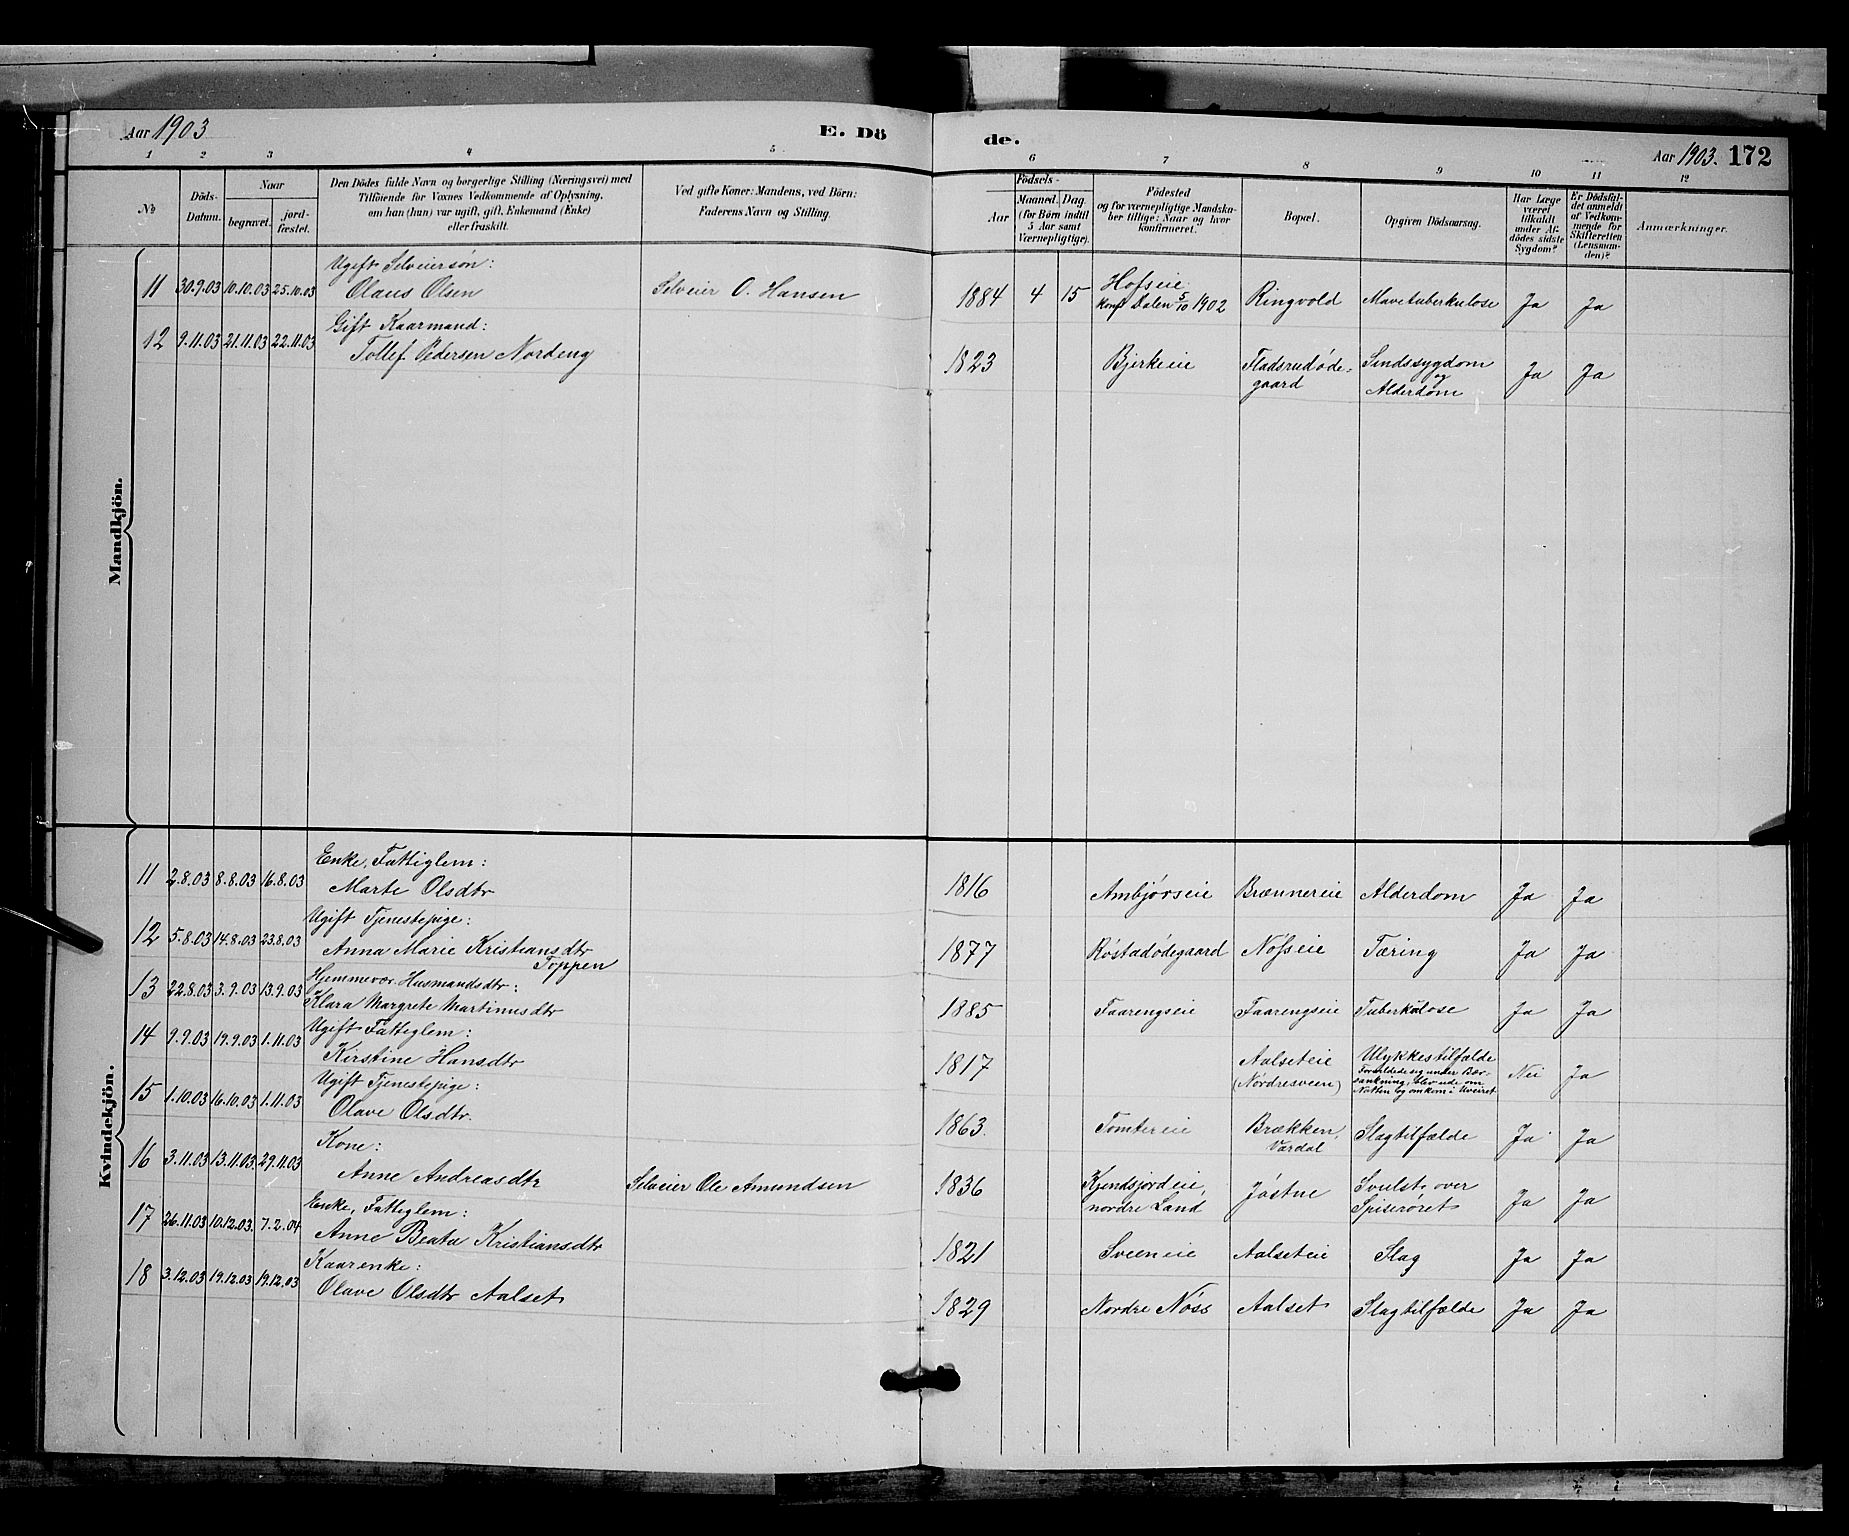 Aar 1903
E. Dö
de.
Aar 1903. 172
1 2 3 4 5 6 7 8 9 10 11 12
No
Döds-
Datum.
Naar
begravet.
jord-
fæstet.
Den Dödes fulde Navn og borgerlige Stilling (Næringsvei) med
Tilföiende for Voxnes Vedkommende af Oplysning,
om han (hun) var ugift, gift, Enkemand (Enke)
eller fraskilt.
Ved gifte Koner: Mandens, ved Börn:
Faderens Navn og Stilling.
Födsels-
Aar
Maaned.
Dag.
(for Börn indtil
5 Aar samt
Værnepligtige).
Födested
og for værnepligtige Mandska-
ber tillige: Naar og hvor
konfirmeret.
Bopæl.
Opgiven Dödsaarsag.
Har Læge
været
tilkaldt
under Af-
dödes sidste
Sygdom?
Er Dödsfal-
det anmeldt
af Vedkom-
mende for
Skifteretten
(Lensman-
den)?
Anmærkninger.
Mandkjön.
Ugift Selveiersön:
11 30.9.03 10.10.03 25.10.03 Olaus Olsen Selveier O. Hansen 1884 4 15 Hofseie
konf. Dalen 5/10 1902 Ringvold Mavetuberkulose Ja Ja
Gift Kaarmand:
12 9.11.03 21.11.03 22.11.03 Tollef Pedersen Nordeng 1823 Bjerkeie Fladsrudøde-
gaard Sindssygdom
og
Alderdom Ja Ja
Kvindekjön.
Enke, Fattiglem:
11 2.8.03 8.8.03 16.8.03 Marte Olsdtr 1816 Ambjørseie Brænnereie Alderdom Ja Ja
Ugift Tjenestepige:
12 5.8.03 14.8.03 23.8.03 Anna Marie Kristiansdtr
Toppen 1877 Røstadødegaard Nøsseie Tæring Ja Ja
Hjemmevær. Husmandsdtr:
13 22.8.03 3.9.03 13.9.03 Klara Margrete Martinusdtr 1885 Faarengseie Faarengseie Tuberkulose Ja Ja
Ugift Fattiglem:
14 9.9.03 19.9.03 1.11.03 Kirstine Hansdtr 1817 Aalseteie
(Nordresveen) Ulykkestilfælde
Forvildede sig under Bær-
sankning, blev ude om
Natten og omkom i Uveiret Nei Ja
Ugift Tjenestepige:
15 1.10.03 16.10.03 1.11.03 Olave Olsdtr. 1863. Tomtereie Brækken,
Vardal Slagtilfælde Ja Ja
Kone:
16 3.11.03 13.11.03 29.11.03 Anne Andreasdtr Selveier Ole Amundsen 1836 Kjendsjordeie,
nordre Land Jøstne Svulst over
Spiserøret Ja Ja
Enke, Fattiglem:
17 26.11.03 10.12.03. 7.2.04 Anne Beate Kristiansdtr 1821 Sveeneie Aalseteie Slag Ja Ja
Kaarenke:
18 3.12.03 19.12.03 19.12.03 Olave Olsdtr Aalset 1829 Nordre Nöss Aalset Slagtilfælde Ja Ja